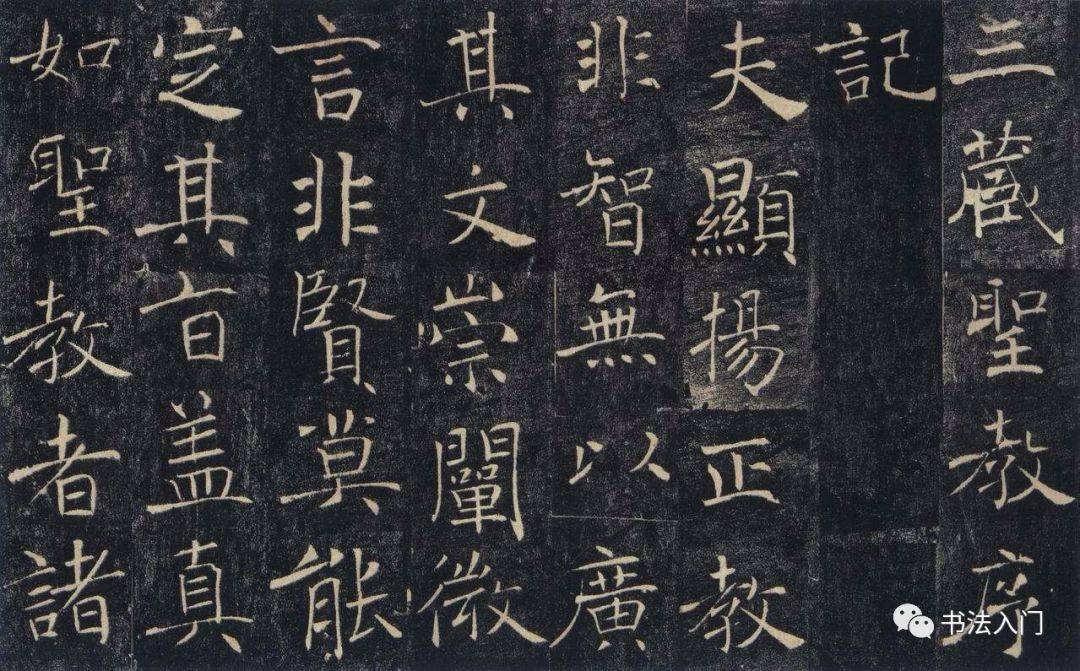 三藏聖教序
記
夫顯揚正教
非智無以廣
其文崇闡微
言非賢莫能
定其旨盖真
如聖教者諸
书法入门